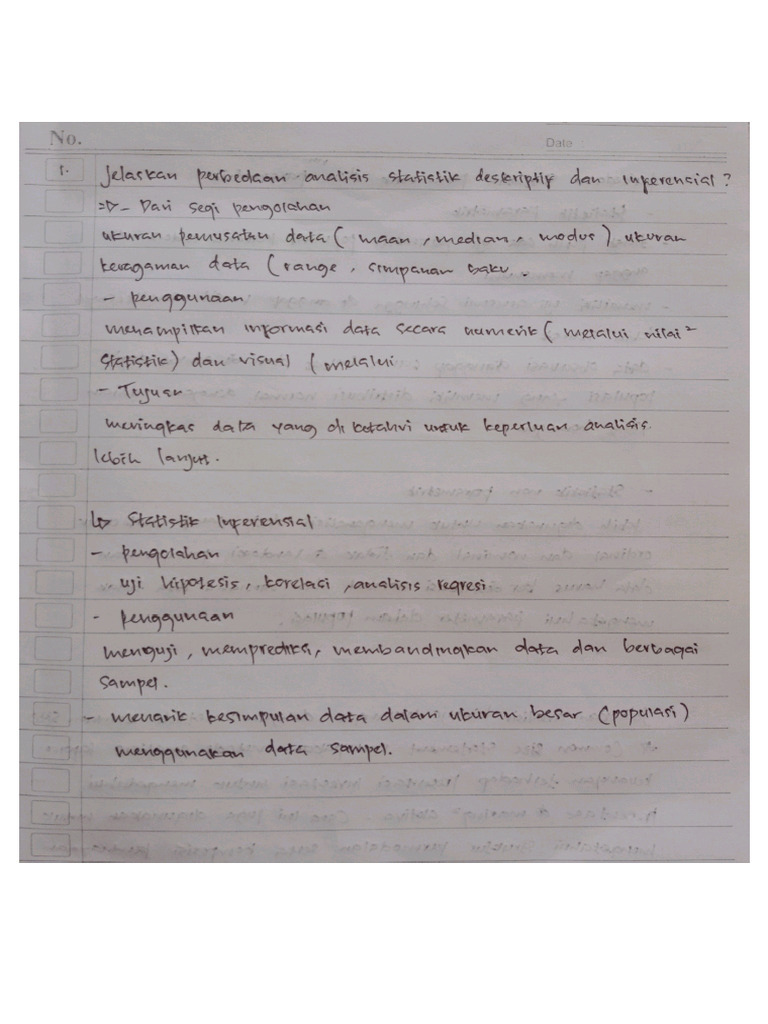 No.
Date :
1. Jelaskan perbedaan analisis statistik deskriptif dan inferensial ?
=> - Dari segi pengolahan
ukuran pemusatan data ( maan , median , modus ) ukuran
keragaman data ( range , simpanan baku .
- penggunaan
menampilkan informasi data secara numerik ( melalui nilai²
statistik) dan visual ( melalui
- Tujuan
meringkas data yang di ketahui untuk keperluan analisis.
lebih lanjut.
↳ Statistik Inferensial
- pengolahan
uji hipotesis , korelasi , analisis regresi
- penggunaan
menguji , memprediksi, membandingkan data dan berbagai
sampel.
- menarik kesimpulan data dalam ukuran besar (populasi)
menggunakan data sampel.